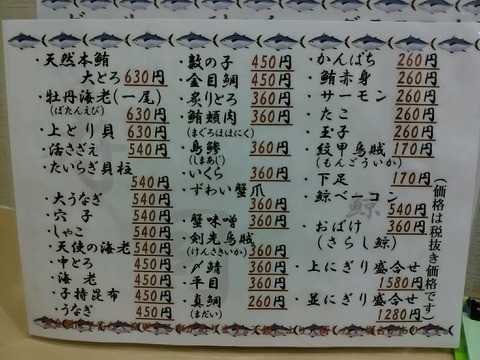 ・天然本鮪
大とろ 630円
・牡丹海老(一尾)
(ぼたんえび) 630円
・上とり貝 630円
・活さざえ 540円
・たいらぎ貝柱
540円
・大うなぎ 540円
・穴子 540円
・しゃこ 540円
・天使の海老 540円
・中とろ 450円
・海老 450円
・子持昆布 450円
・うなぎ 450円
・数の子 450円
・金目鯛 450円
・炙りとろ 360円
・鮪頬肉 360円
(まぐろほほにく)
・島鯵 360円
(しまあじ)
・いくら 360円
・ずわい蟹爪
360円
・蟹味噌 360円
・剣先烏賊
(けんさきいか) 360円
・〆鯖 360円
・平目 360円
・真鯛 260円
(まだい)
・かんぱち 260円
・鮪赤身 260円
・サーモン 260円
・たこ 260円
・玉子 260円
・紋甲烏賊 170円
(もんごういか)
・下足 170円
・鯨ベーコン
540円
・おばけ 360円
(さらし鯨)
・上にぎり盛合せ
1580円
・並にぎり盛合せ
1280円
(価格は税抜き価格です)